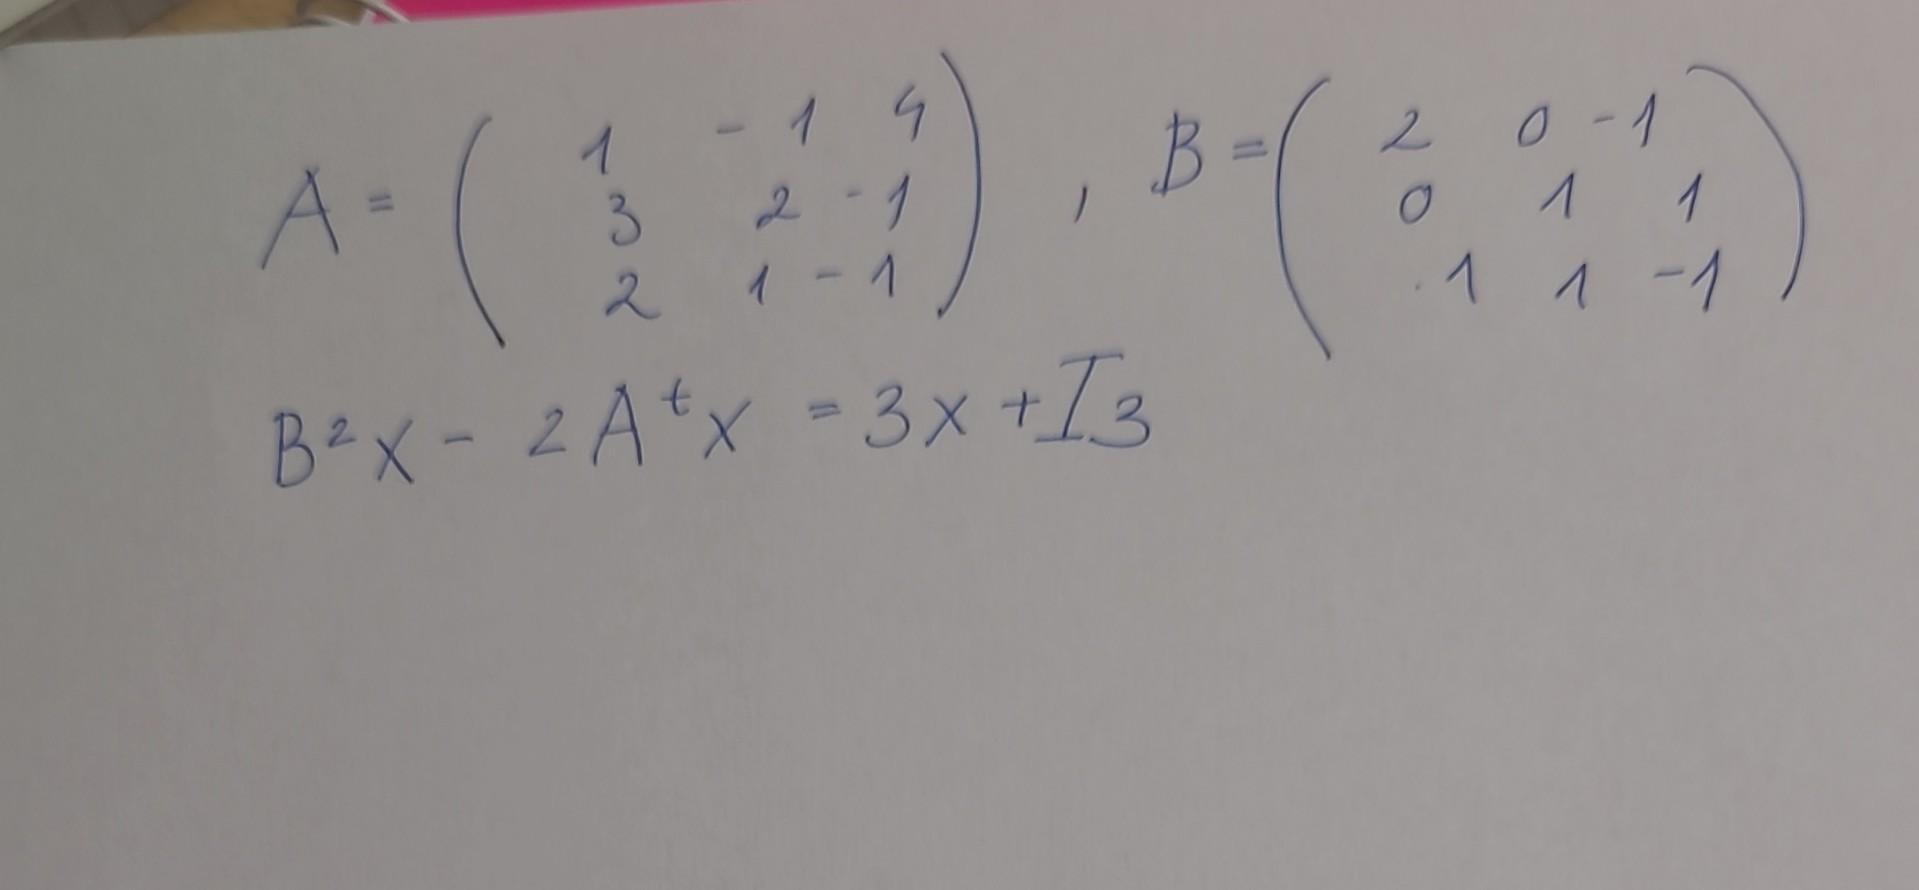 A = ( 1 -1 4 ; 3 2 -1 ; 2 1 -1 ) , B = ( 2 0 -1 ; 0 1 1 ; 1 1 -1 )
B²x - 2Aᵗx = 3x + I₃